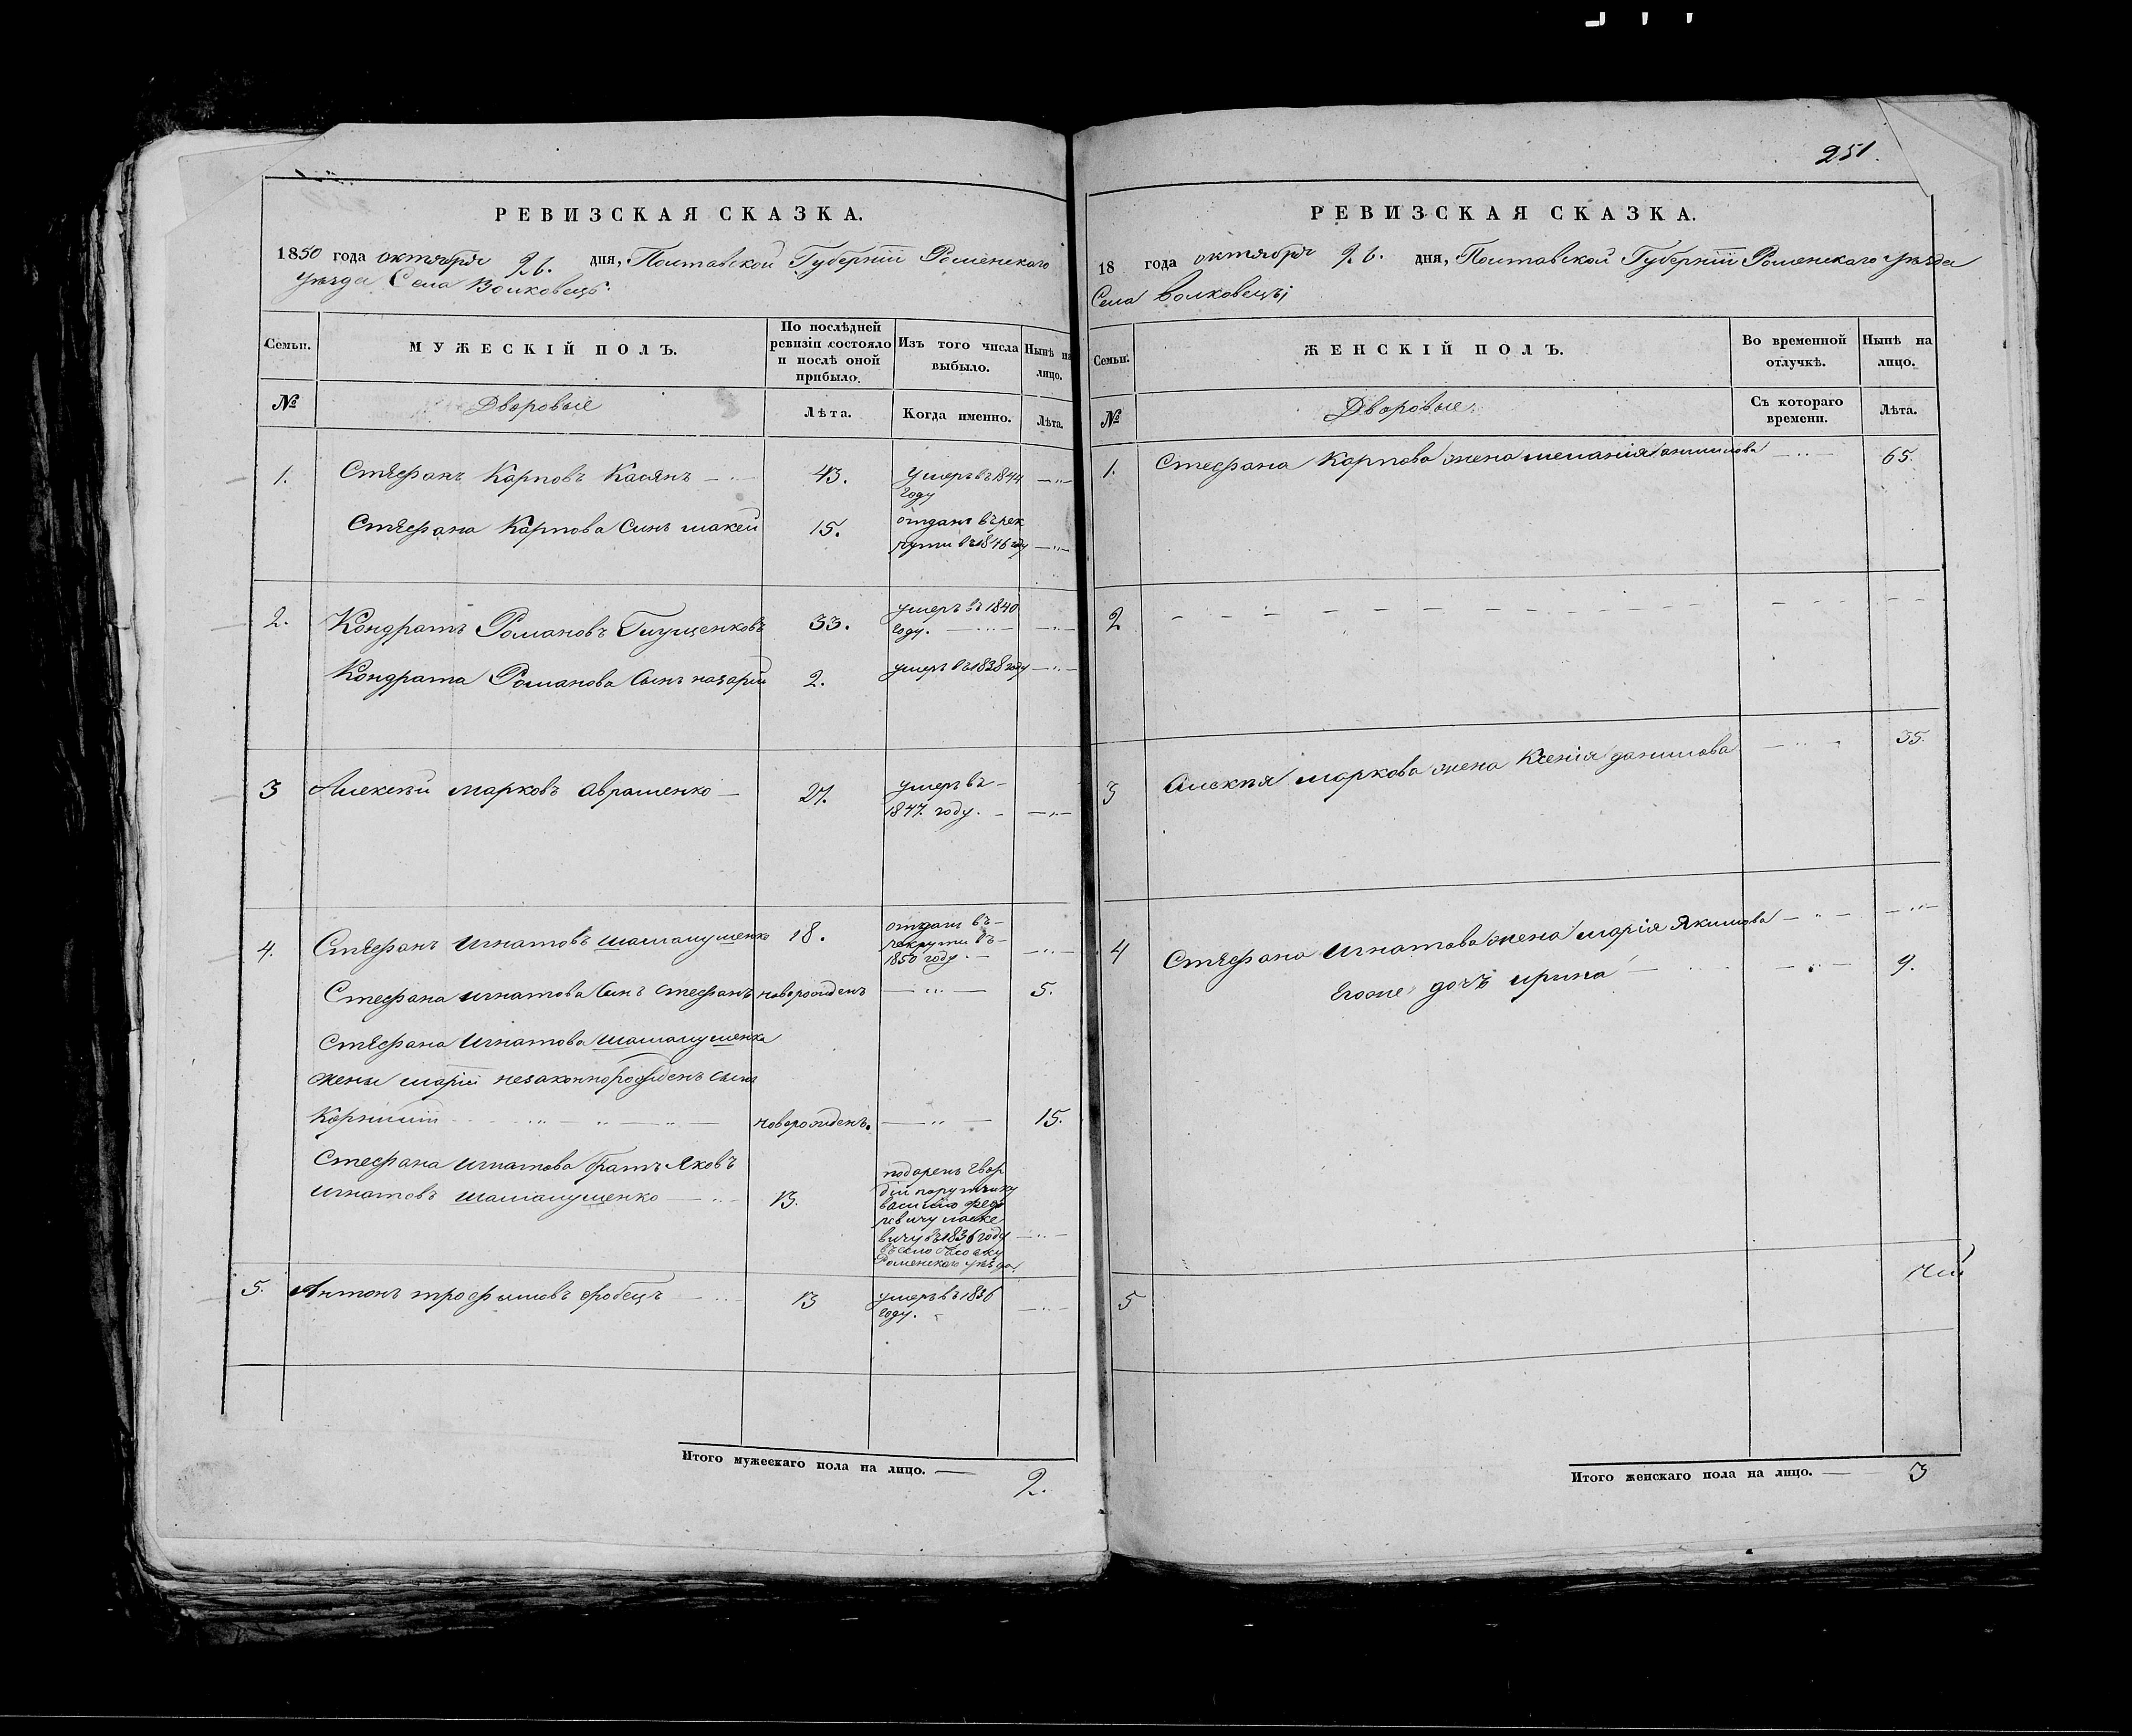 251.
РЕВИЗСКАЯ СКАЗКА.
1850 года октября 26. дня, Полтавской Губерніи Роменскаго
уѣзда Села Волковецъ.
Семьи.
МУЖЕСКІЙ ПОЛЪ.
По послѣдней ревизіи состояло и послѣ оной прибыло.
Изъ того числа выбыло.
Нынѣ на лицо.
№
Дворовые
Лѣта.
Когда именно.
Лѣта.
1. Стефанъ Карповъ Касянъ 43. умеръ въ 1844
году
Стефана Карпова сынъ Макей 15. отданъ въ рек
руты въ 1846 году
2. Кондратъ Романовъ Глущенковъ 33. умеръ въ 1840
году.
Кондрата Романова сынъ назарій 2. умеръ въ 1838 году
3 Алексѣй марковъ авраменко 27. умеръ въ
1847. году.
4. Стефанъ игнатовъ 18. отданъ въ
рекруты въ
1850 году.
Стефана игнатова сынъ стефанъ новорожденъ 5.
Стефана игнатова
жены маріи незаконнорожденъ сынъ
Корнилій новорожденъ. 15.
Стефана игнатова братъ яковъ
игнатовъ 13. подаренъ гвар
діи поручику
василію федо
ровичу маске
вичу въ 1836 году
въ село
Роменскаго уѣзда.
5. Антонъ трофимовъ 13 умеръ въ 1836
году.
Итого мужескаго пола на лицо. 2.
РЕВИЗСКАЯ СКАЗКА.
18 года октября 26. дня, Полтавской Губерніи Роменскаго уѣзда
Села Волковецъ;
Семьи.
ЖЕНСКІЙ ПОЛЪ.
Во временной отлучкѣ.
Нынѣ на лицо.
№
Дворовые.
Съ котораго времени.
Лѣта.
1. Стефана Карпова жена меланія 65.
2
3 Алексѣя маркова жена Ксенія данилова 35.
4 Стефана игнатова жена марія Якимова
Егоже дочь ирина 9.
5
Итого женскаго пола на лицо. 3